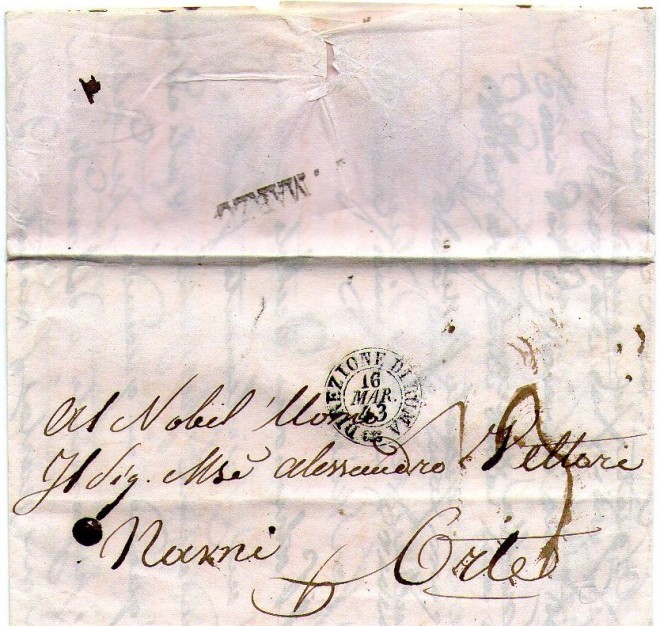 DIREZIONE DI ROMA
16
MAR.
43
Al Nobil Uomo
Il Sig. Mse Alessandro Vettori
Narni Orte